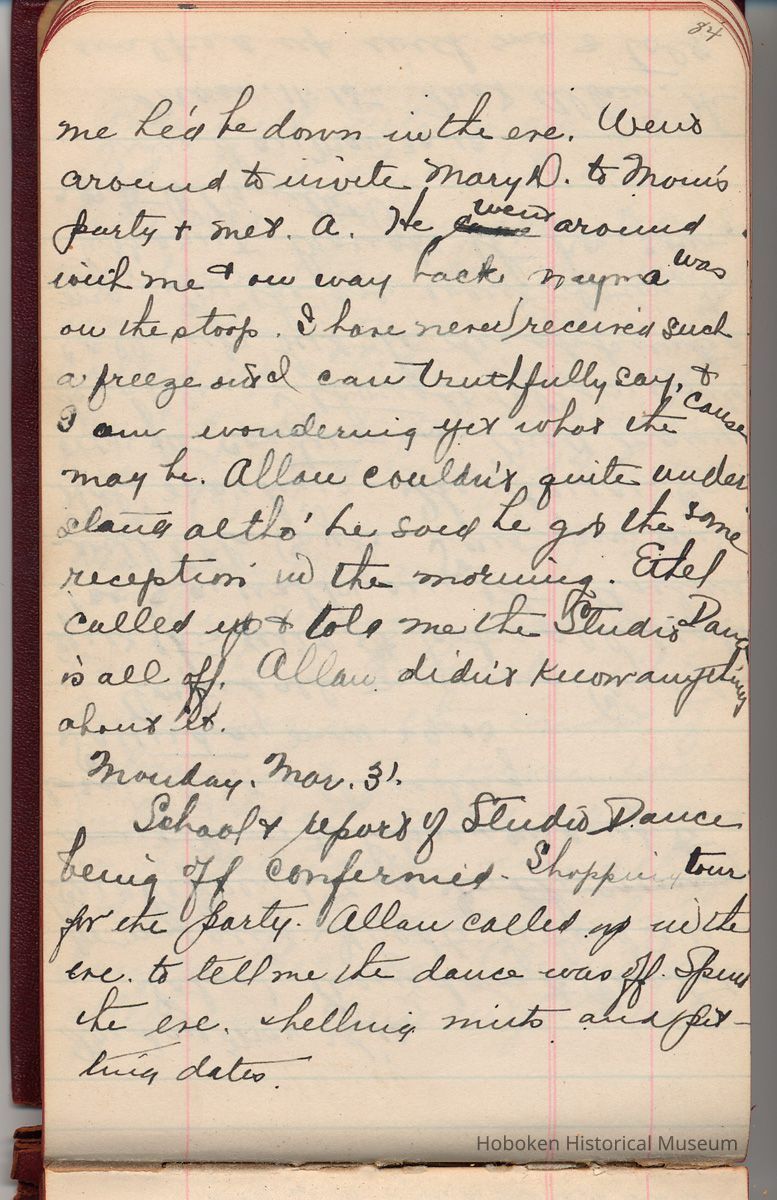 84
me he'd be down in the eve. Went
around to invite Mary D. to Mom's
party & met. A. He went around
with me & on way back mayma was
on the stoop. I have never received such
a freeze and I can truthfully say, &
I am wondering yet what the cause
may be. Allan couldn't quite under
stand altho' he said he got the same
reception in the morning. Ethel
called up & told me the Studio Dance
is all off. Allan didn't know anything
about it.
Monday. Mar. 31.
School & report of Studio Dance
being off confirmed. Shopping tour
for the party. Allan called up in the
eve. to tell me the dance was off. Spent
the eve. shelling nuts and pit-
ting dates.
Hoboken Historical Museum